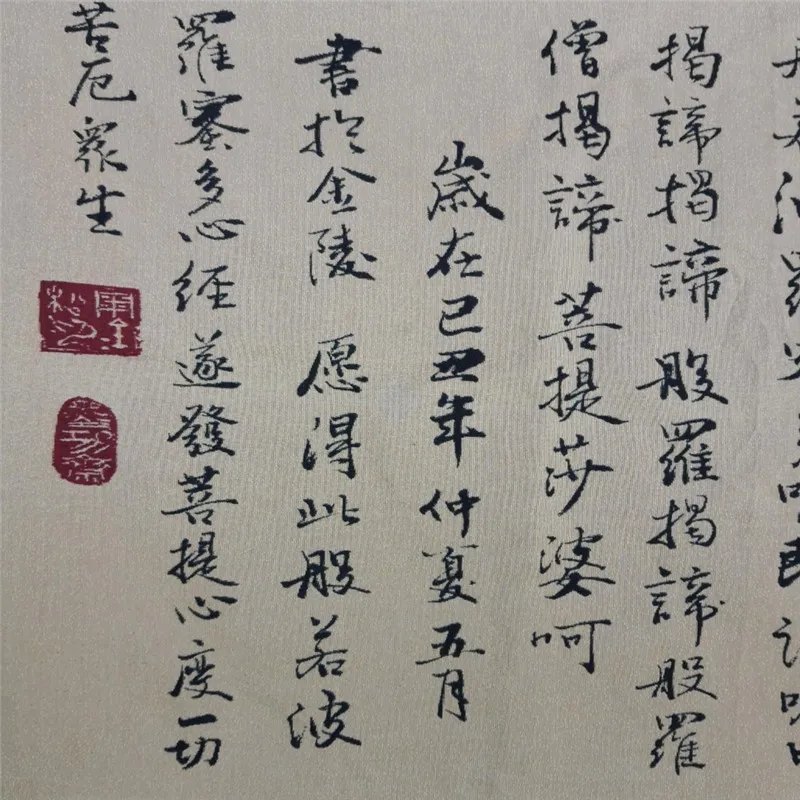 揭諦揭諦 般羅揭諦般羅
僧揭諦 菩提莎婆呵
歲在己丑年仲夏五月
書於金陵 愿得此般若波
羅蜜多心經遂發菩提心度一切
苦厄眾生